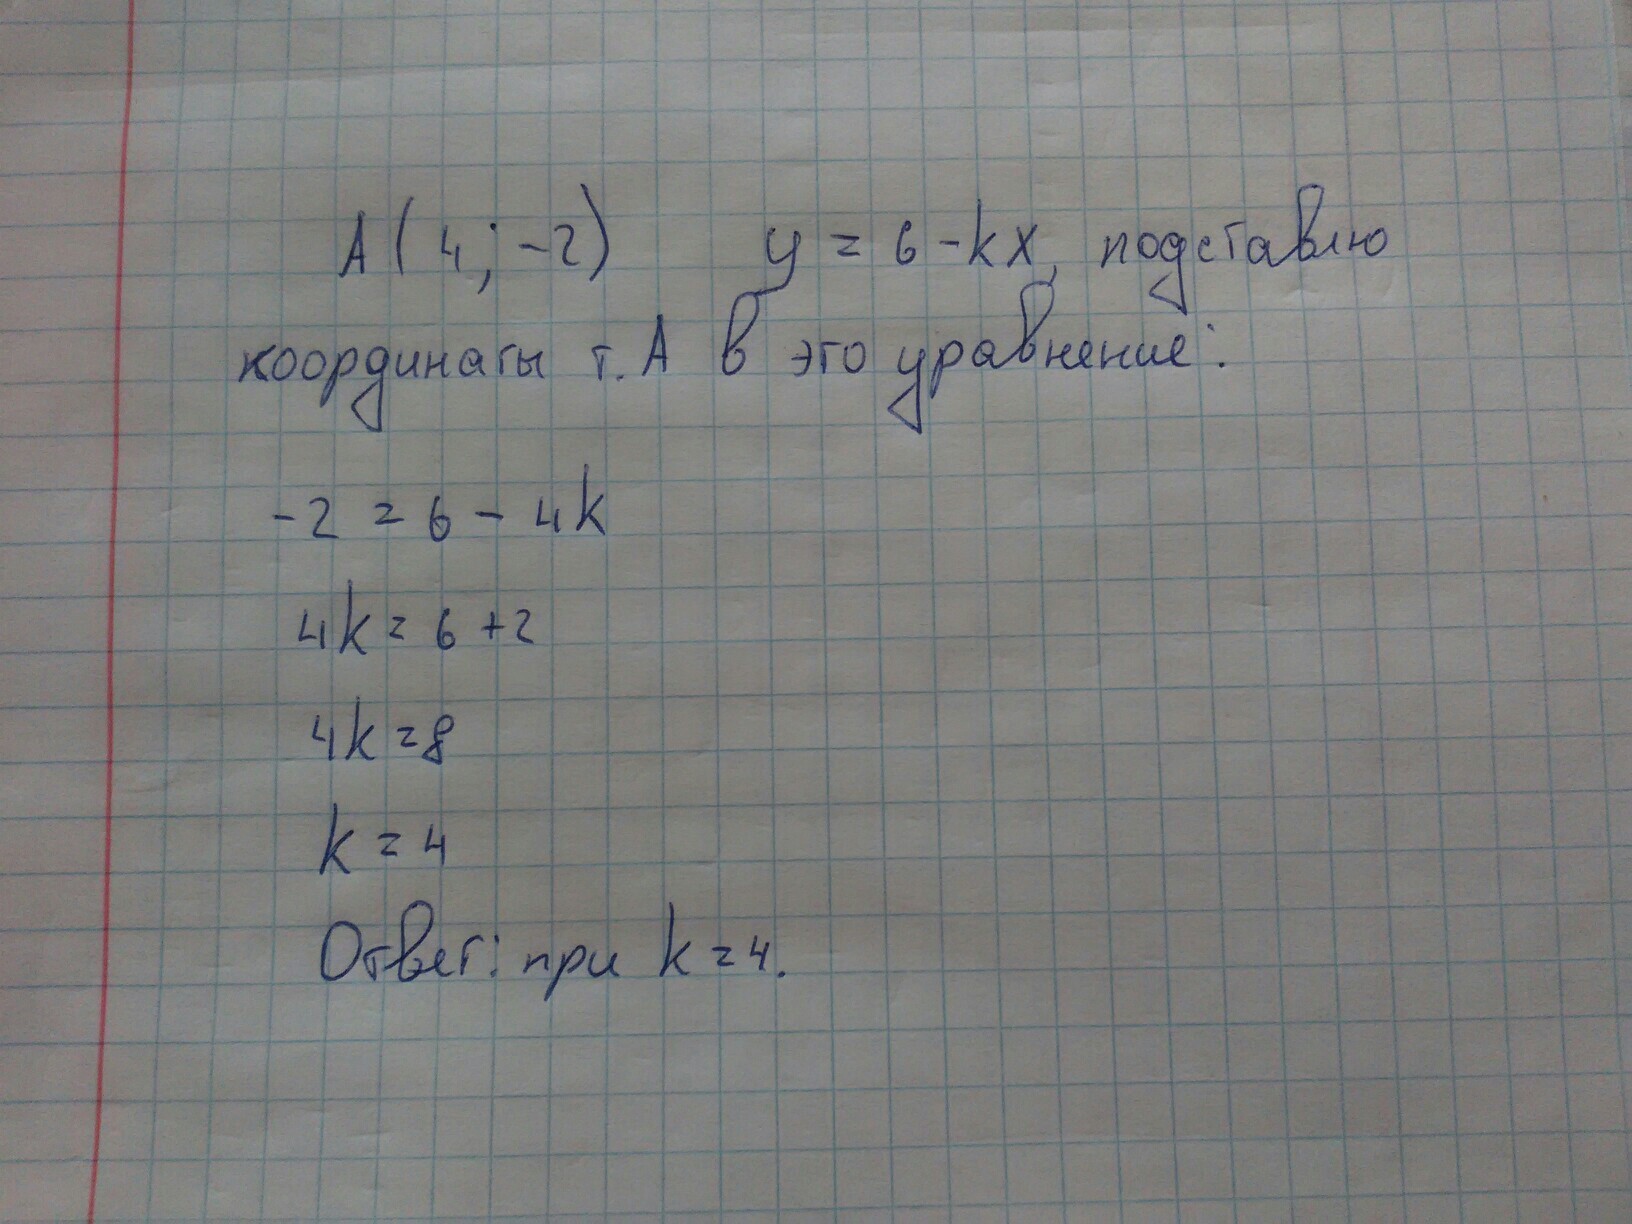 A(4;-2) y=6-kx, подставлю
координаты т. А в это уравнение:
-2=6-4k
4k=6+2
4k=8
k=4
Ответ: при k=4.